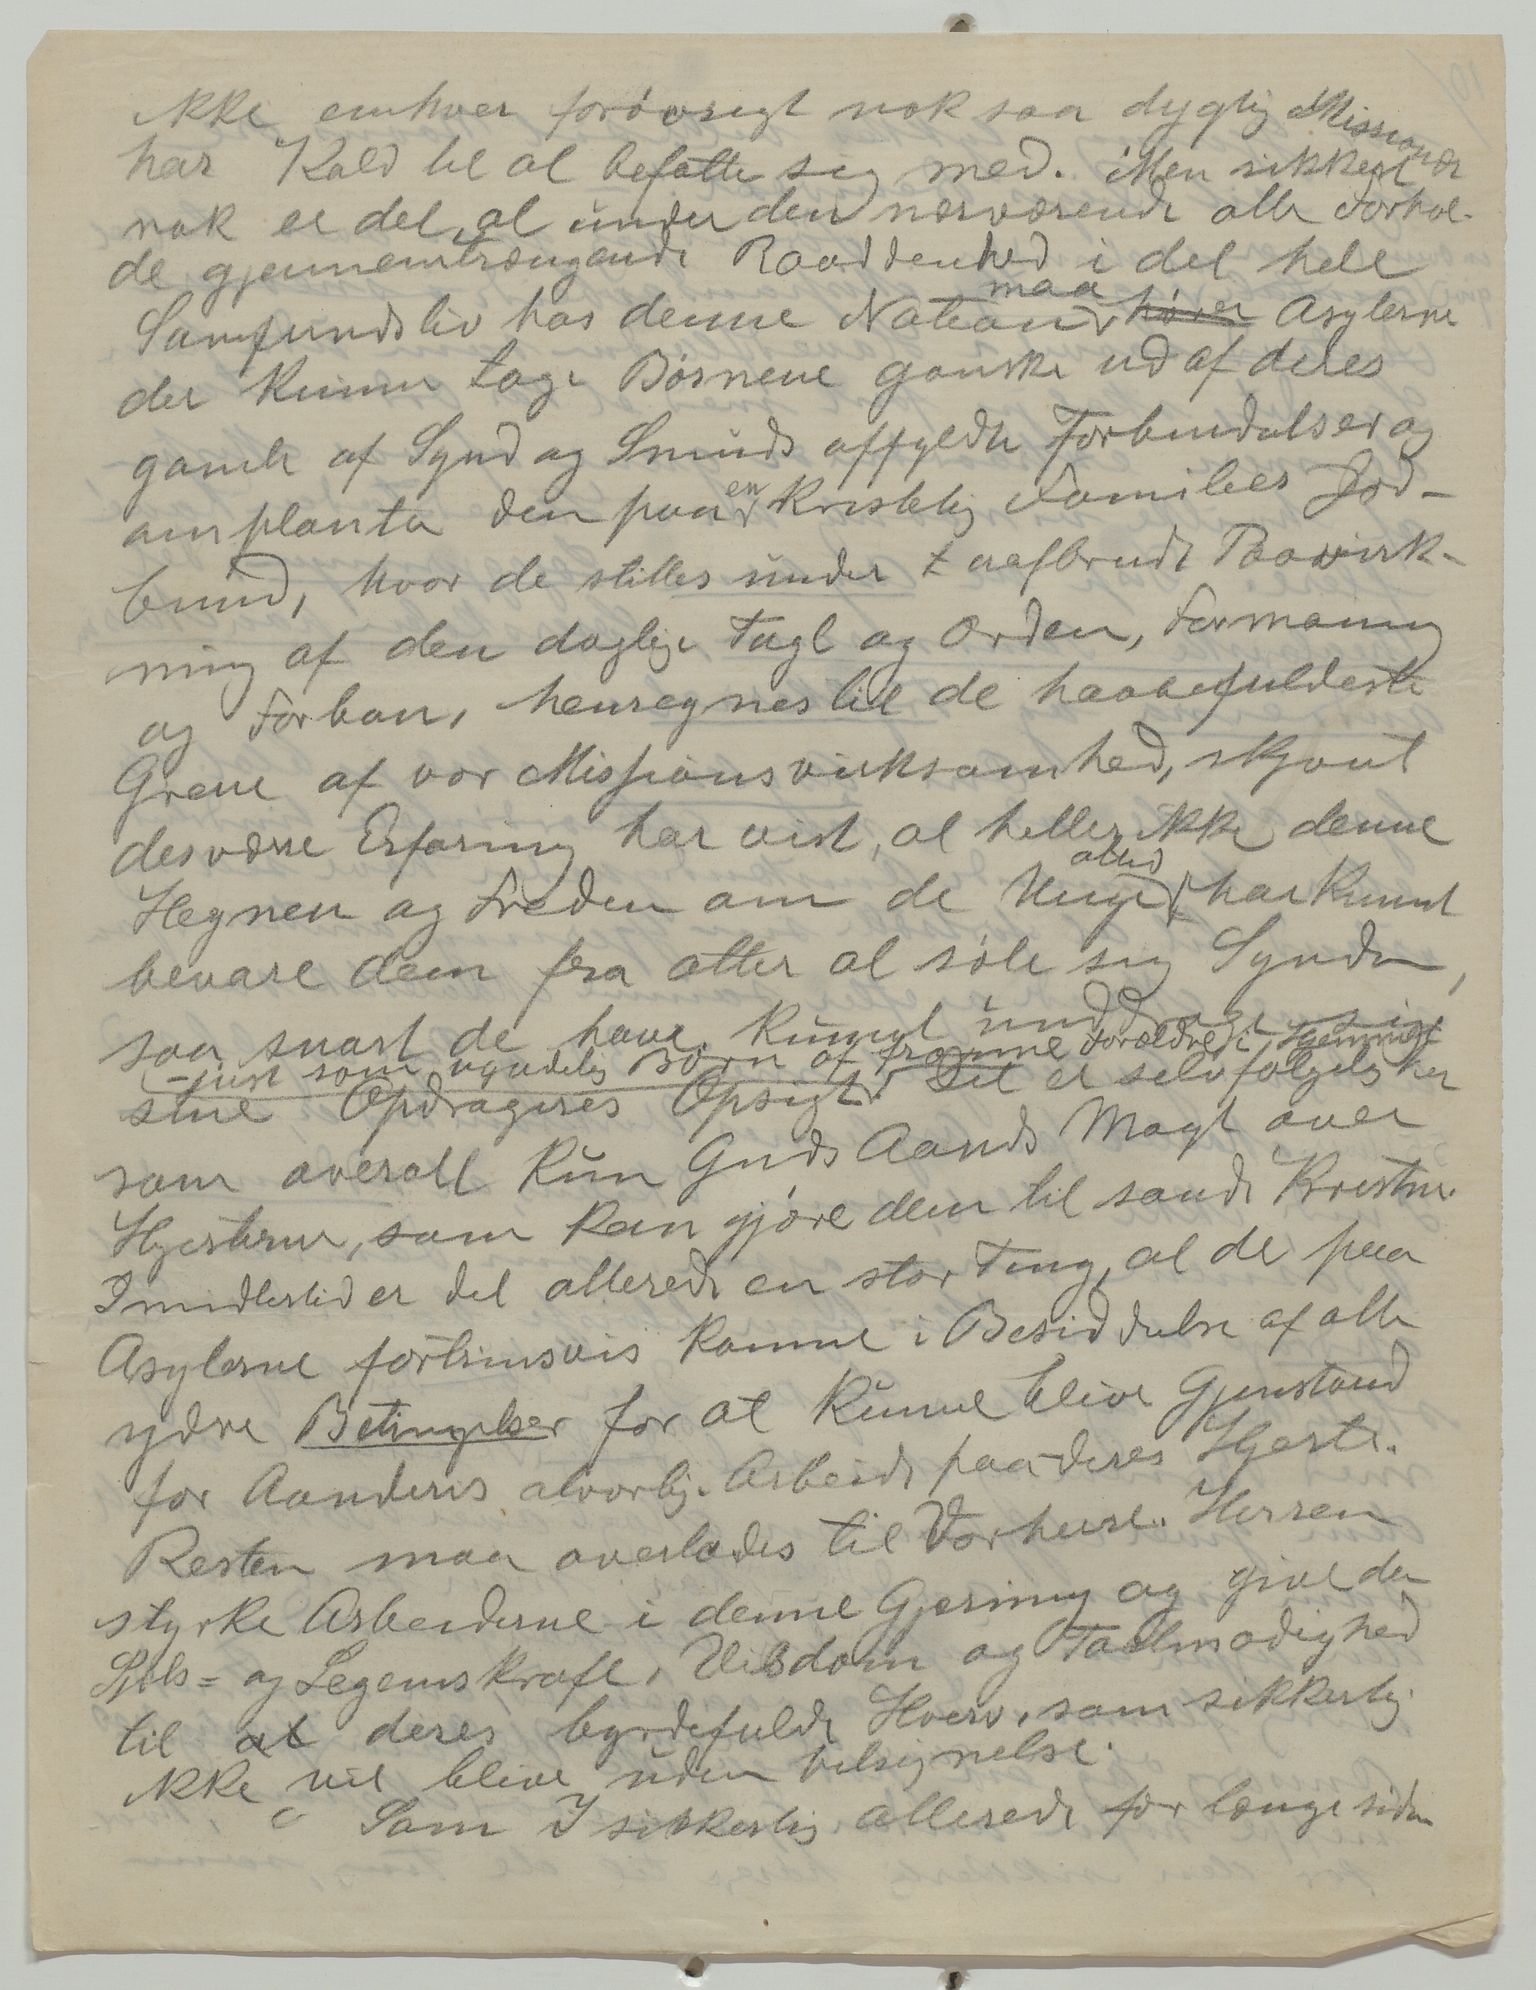 ikke enhver forøvrigt nok saa dygtig Missionær
har Kald til at befatte sig med. Men sikkert
nok er det, at under den nærværende alle Forhol-
de gjennemtrængende Raaddenhed i det hele
Samfundsliv hos denne Nation maa hører Asylerne
der kunne tage Børnene ganske ud af deres
gamle af Synd og Smuds opfyldte Forbindelser og
omplante dem paa en kristelig Families Jord-
bund, hvor de stilles under uafbrudt Paavirk-
ning af den daglige Tugt og Orden, Formaning
og Forbøn, henregnes til de haabefuldeste
Grene af vor Missionsvirksomhed, skjønt
desværre Erfaring har vist, at heller ikke denne
Hegnen og Freden om de Unge altid har kunnet
bevare dem fra atter at søle sig Synden,
saa snart de have kunnet unddrage sig
- just som vanartig Børn af fromme Forældre i Hjemmet
sine Opdrageres Opsigt. Det er selvfølgelig her
som overalt kun Guds Aands Magt over
Hjerterne, som kan gjøre dem til sande Kristne.
Imidlertid er det allerede en stor Ting, at de paa
Asylerne fortrinsvis komme i Besiddelse af alle
ydre Betingelser for at kunne blive Gjenstand
for Aandens alvorlige Arbeide paa deres Hjerte.
Resten maa overlades til Vorherre. Herren
styrke Arbeiderne i denne Gjerning og give dem
Sjels- og Legemskraft, Visdom og Taalmodighed
til at deres byrdefulde Hverv, som sikkerlig
ikke vil blive uden Velsignelse.
Som I sikkerlig allerede for længe siden